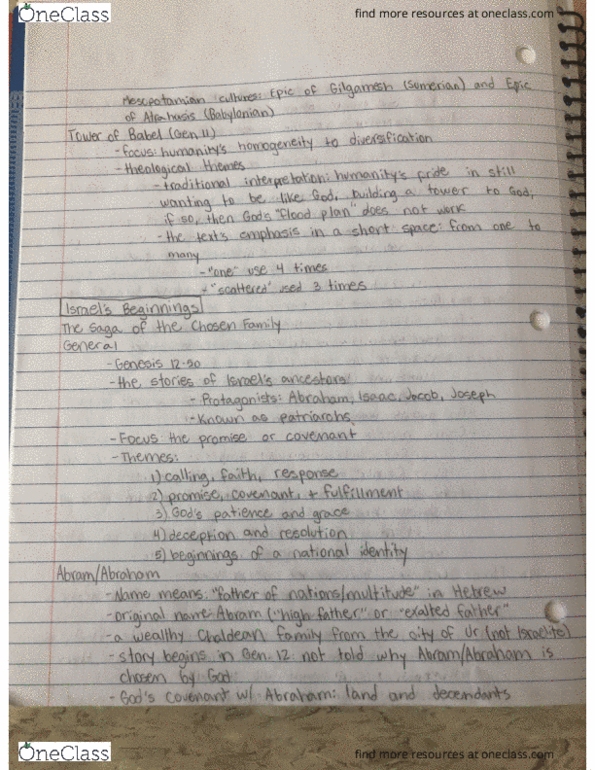 OneClass
find more resources at oneclass.com
Mesopotamian cultures: Epic of Gilgamesh (Sumerian) and Epic
of Atrahasis (Babylonian)
Tower of Babel (Gen. 11)
- focus: humanity's homogeneity to diversification
- theological themes
- traditional interpretation: humanity's pride in still
wanting to be like God, building a tower to God,
if so, then God's "flood plan" does not work
- the text's emphasis in a short space: from one to
many
- "one" use 4 times
- "scattered" used 3 times
Israel's Beginnings
The Saga of the Chosen Family
General
- Genesis 12-50
- the stories of Israel's ancestors
- Protagonists: Abraham, Isaac, Jacob, Joseph
- Known as patriarchs
- Focus the promise or covenant
- Themes:
1) calling, faith, response
2) promise, covenant, + fulfillment
3) God's patience and grace
4) deception and resolution
5) beginnings of a national identity
Abram/Abraham
- Name means: "father of nations/multitude" in Hebrew
- original name: Abram ("high father" or "exalted father"
- a wealthy Chaldean family from the city of Ur (not Israelite)
- story begins in Gen. 12: not told why Abram/Abraham is
chosen by God
- God's covenant w/ Abraham: land and decendants
OneClass
find more resources at oneclass.com